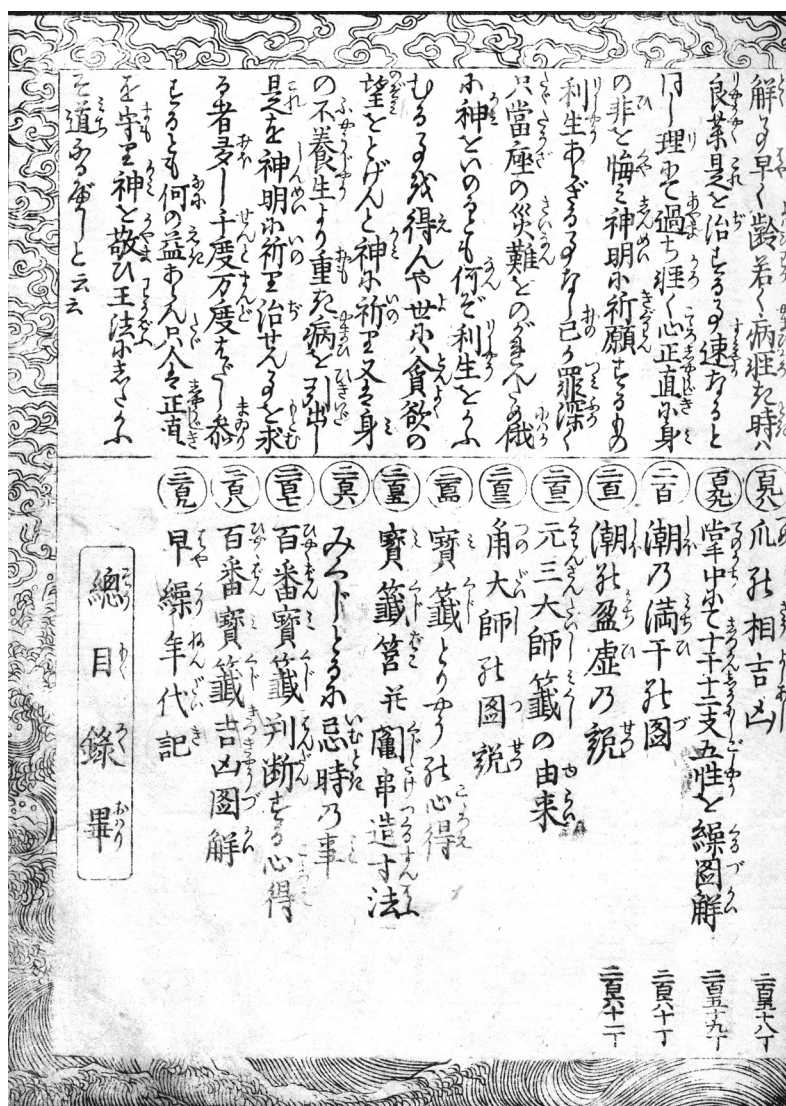 解事早く齢若く病軽き時ハ
良薬是を治する事速なると
同じ理にて過ち軽く心正直に身
の非を悔ミ神明に祈願するもの
利生あらざる事なし己が罪深く
只當座の災難をのがれんため俄
に神をいのるとも何ぞ利生をかふ
むる事を得んや世にハ貪欲の
望をとげんと神に祈り又ハ身
の不養生より重き病を引出し
是を神明に祈り治せん事を求
る者多し千度万度はだし參
するとも何の益あらん只人ハ正直
を守り神を敬ひ王法にしたがふ
を道なるべしと云云
百九八 爪の相吉凶 二百五十八丁
百九九 掌中にて十干十二支五性を繰圖解 二百五十九丁
二百 潮の満干の圖 二百六十丁
二百一 潮の盈虚の説 二百六十一丁
二百二 元三大師籤の由来
二百三 角大師の圖説
二百四 寶籤とりやうの心得
二百五 寶籤筥并圖串造寸法
二百六 みくじとるに忌時の事
二百七 百番寶籤判断する心得
二百八 百番寶籤吉凶圖解
二百九 早繰年代記
總目錄畢